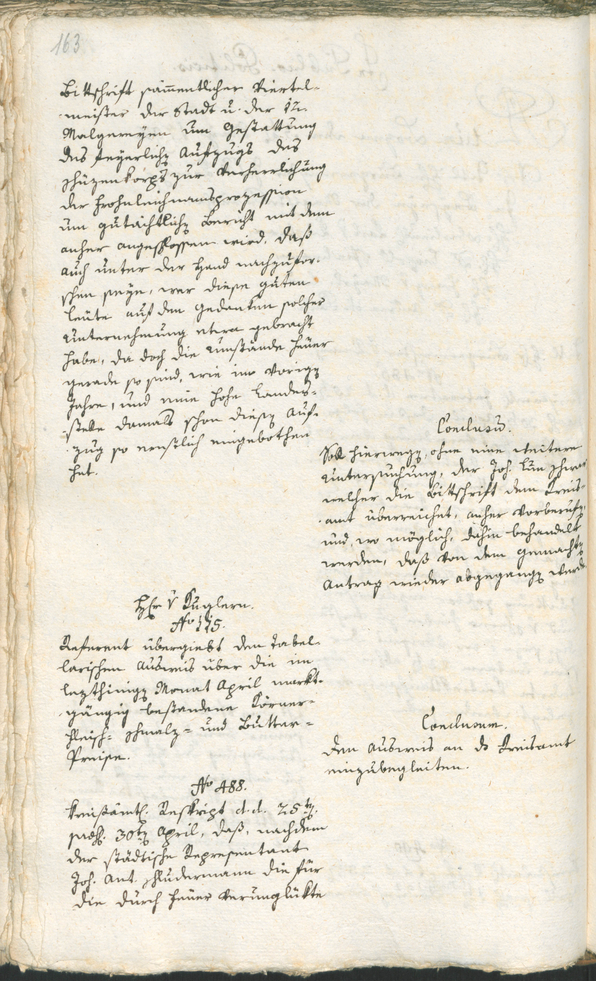 163.
Bittschrift sam̅entlicher Viertel-
meister der Stadt u. der 12.
Malgereyen um Gestattung
des feyerlichen Aufzugs des
Schüzenkorps zur Verherrlichung
der Frohnleichnamsprozession
um gutächtlichen Bericht mit dem
anher angeschlossen wird, daß
auch unter der Hand nachzufor-
schen seye, wer diese guten
Leute auf den Gedanken solcher
Unternehmung etwa gebracht
habe, da doch die Umstände heuer
gerade so sind, wie im vorigen
Jahre, und eine hohe Landes-
stelle damals schon diesen Auf-
zug so ernstlich eingebothen
hat.
Conclusum.
Soll hierwegen, ohne eine weitere
Untersuchung, der Joh.
welcher die Bittschrift dem Kreis-
amt überreichet, anher vorberufen
und, wo möglich, dahin behandelt
werden, daß von dem gemachten
Antrag wieder abgegangen werde
H. v Kuglern.
No 115.
Referent übergiebt den Tabel-
larischen Ausweis über die im
leztthinigen Monat April markt-
gängig bestandene Körner-
Fleisch- Schmalz- und Butter-
Preise.
Conclusum.
Den Ausweis an das Kreisamt
einzubegleiten.
No 488.
Kreisämtl. Reskript d.d. 25ten
praes. 30ten April, daß, nachdem
der städtische Representant
Joh. Ant. Schludermann die für
die durch Feuer Verunglückte